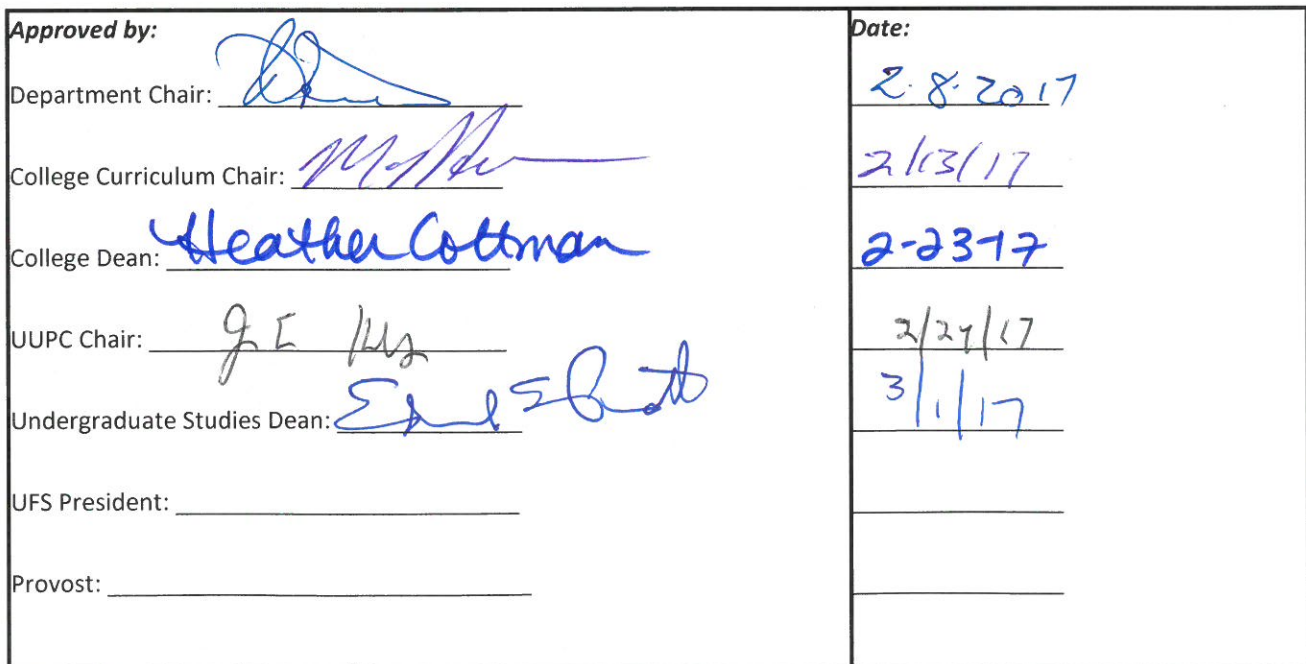 Approved by: Date:
Department Chair: 2.8.2017
College Curriculum Chair: 2/13/17
College Dean: Heather Coltman 2-23-17
UUPC Chair:
Undergraduate Studies Dean: 3/1/17
UFS President:
Provost: